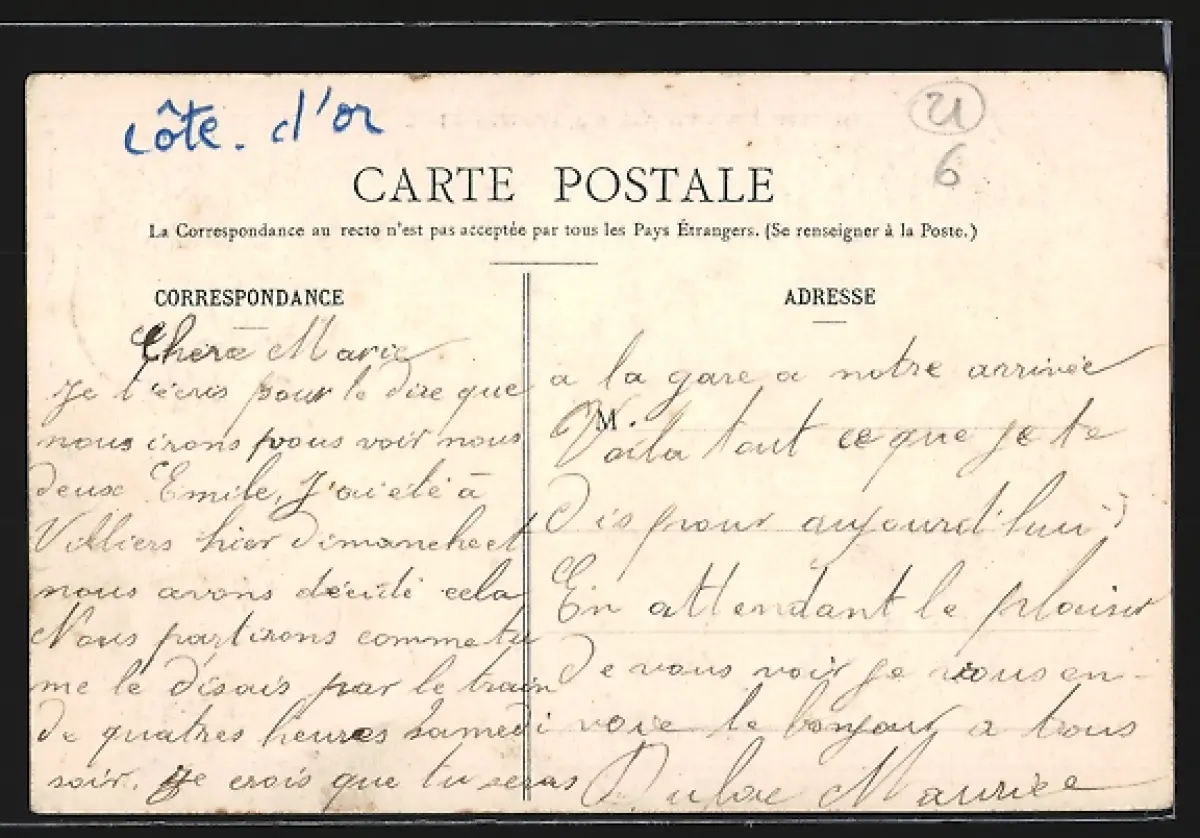 côte. d'or
21
6
CARTE POSTALE
La Correspondance au recto n'est pas acceptée par tous les Pays Étrangers. (Se renseigner à la Poste.)
CORRESPONDANCE
Chère Marie
Je t'écris pour te dire que
nous irons vous voir nous
deux Emile, J'ai été à
Villiers hier Dimanche et
nous avons décidé cela
Nous partirons comme tu
me le disais par le train
de quatres heures samedi
soir. Je crois que tu seras
ADRESSE
a la gare a notre arrivée
M.
Voila tout ce que je te
dis pour aujourd'hui
En attendant le plaisir
de vous voir je vous en-
voie le bonjour a tous
Maurice